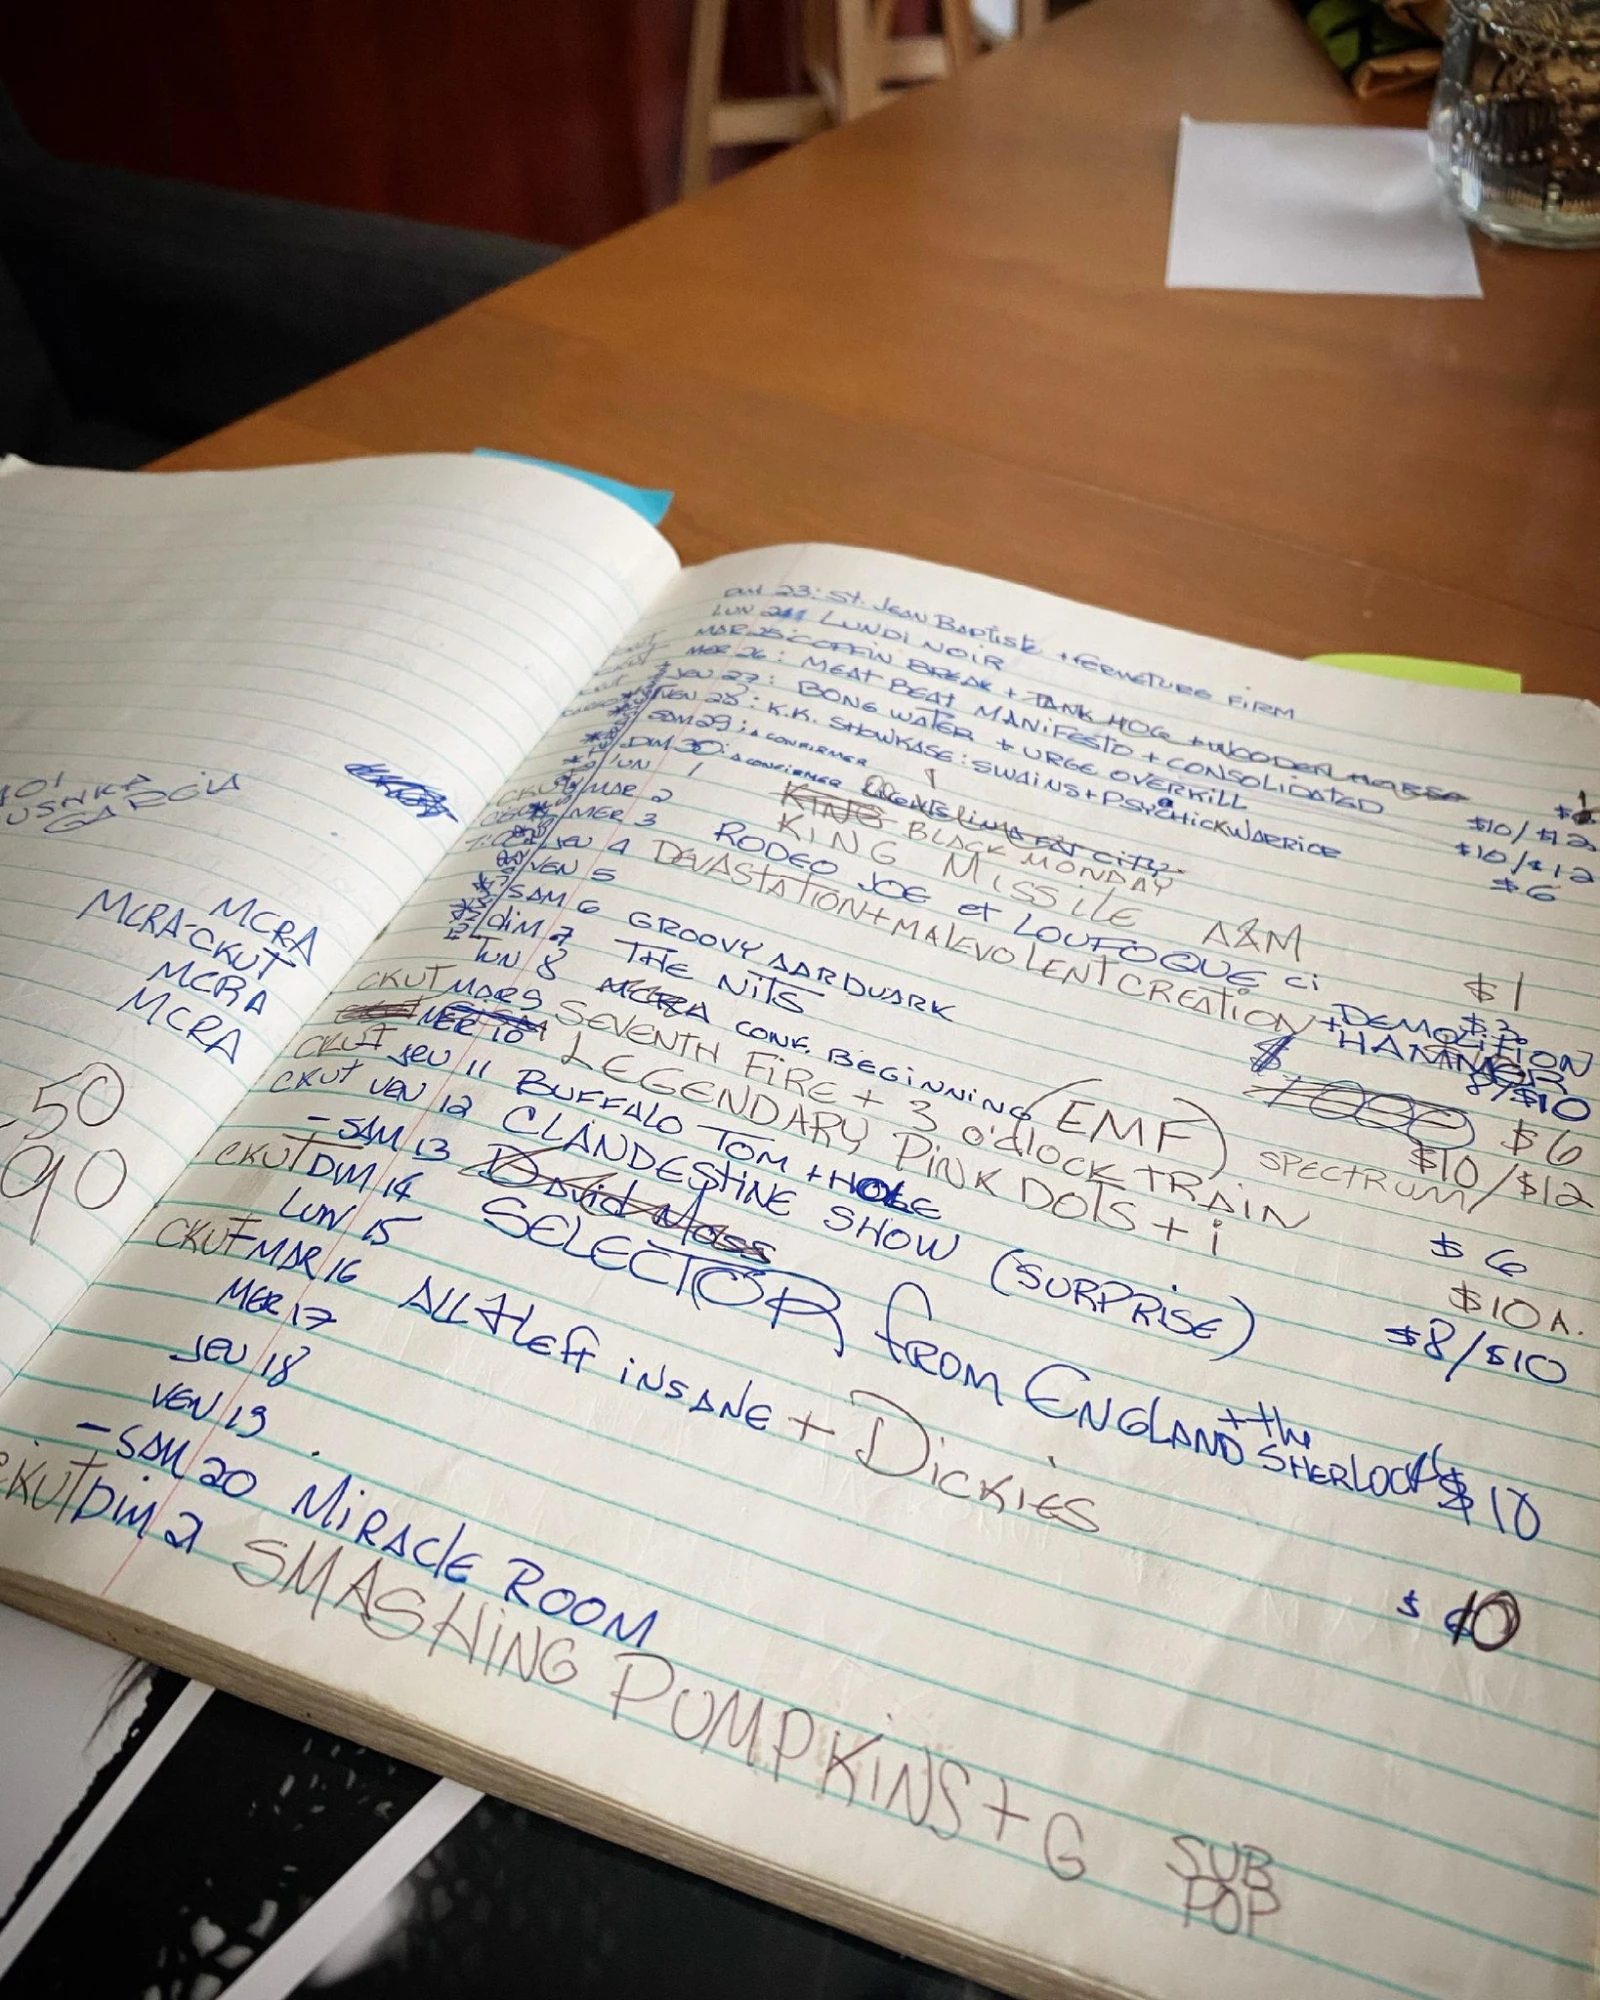 GARCIA
MCRA
MCRA-CKUT
MCRA
MCRA
50
90
23: St. JEAN BAPTISTE + FERMETURE FIRM
LUN 24 LUNDI NOIR
MAR 25: COFFIN BREAK + TANK HOG + WOODEN HORSE
MER 26: MEAT BEAT MANIFESTO + CONSOLIDATED $10/$12
JEU 27: BONG WATER + URGE OVERKILL $10/$12
VEN 28: K.K. SHOWKASE: SWAINS + PSYCHICK WARRIORS $6
SAM 29: A CONFIRMER
DIM 30: A CONFIRMER
LUN 1 BLACK MONDAY
CKUT MAR 2 KING MISSILE A&M
MER 3 RODEO JOE et LOUFOQUE ci $1
JEU 4 DEVASTATION + MALEVOLENT CREATION + DEMOLITION HAMMER $10
VEN 5
SAM 6 GROOVY AARDVARK $6
dim 7 THE NITS $10/$12
LUN 8 MCRA CONF. BEGINNING (EMF) SPECTRUM
CKUT MAR 9 SEVENTH FIRE + 3 O'CLOCK TRAIN $6
MER 10 LEGENDARY PINK DOTS + i $10 A.
CKUT JEU 11 BUFFALO TOM + HOLE $8/$10
CKUT VEN 12 CLANDESTINE SHOW (SURPRISE)
- SAM 13 David Moss
CKUT DIM 14 SELECTOR from ENGLAND + the SHERLOCKS $10
LUN 15
CKUT MAR 16 ALL that Left INSANE + DICKIES $10
MER 17
JEU 18
VEN 19
- SAM 20 MIRACLE ROOM
CKUT DIM 2 SMASHING PUMPKINS + G SUB POP